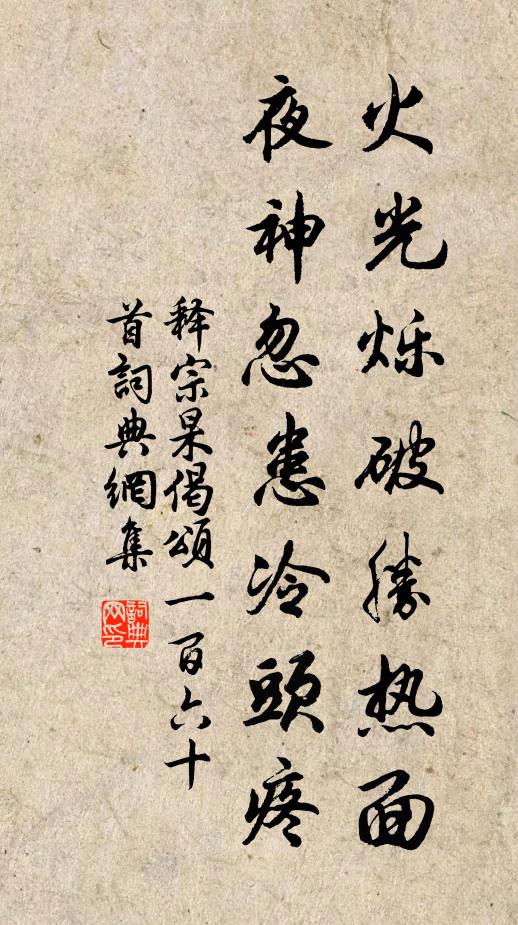 火光烁破勝热面
夜神忽患冷頭疼
释宗杲偈頌一百六十
首詞典網集
詞典网印